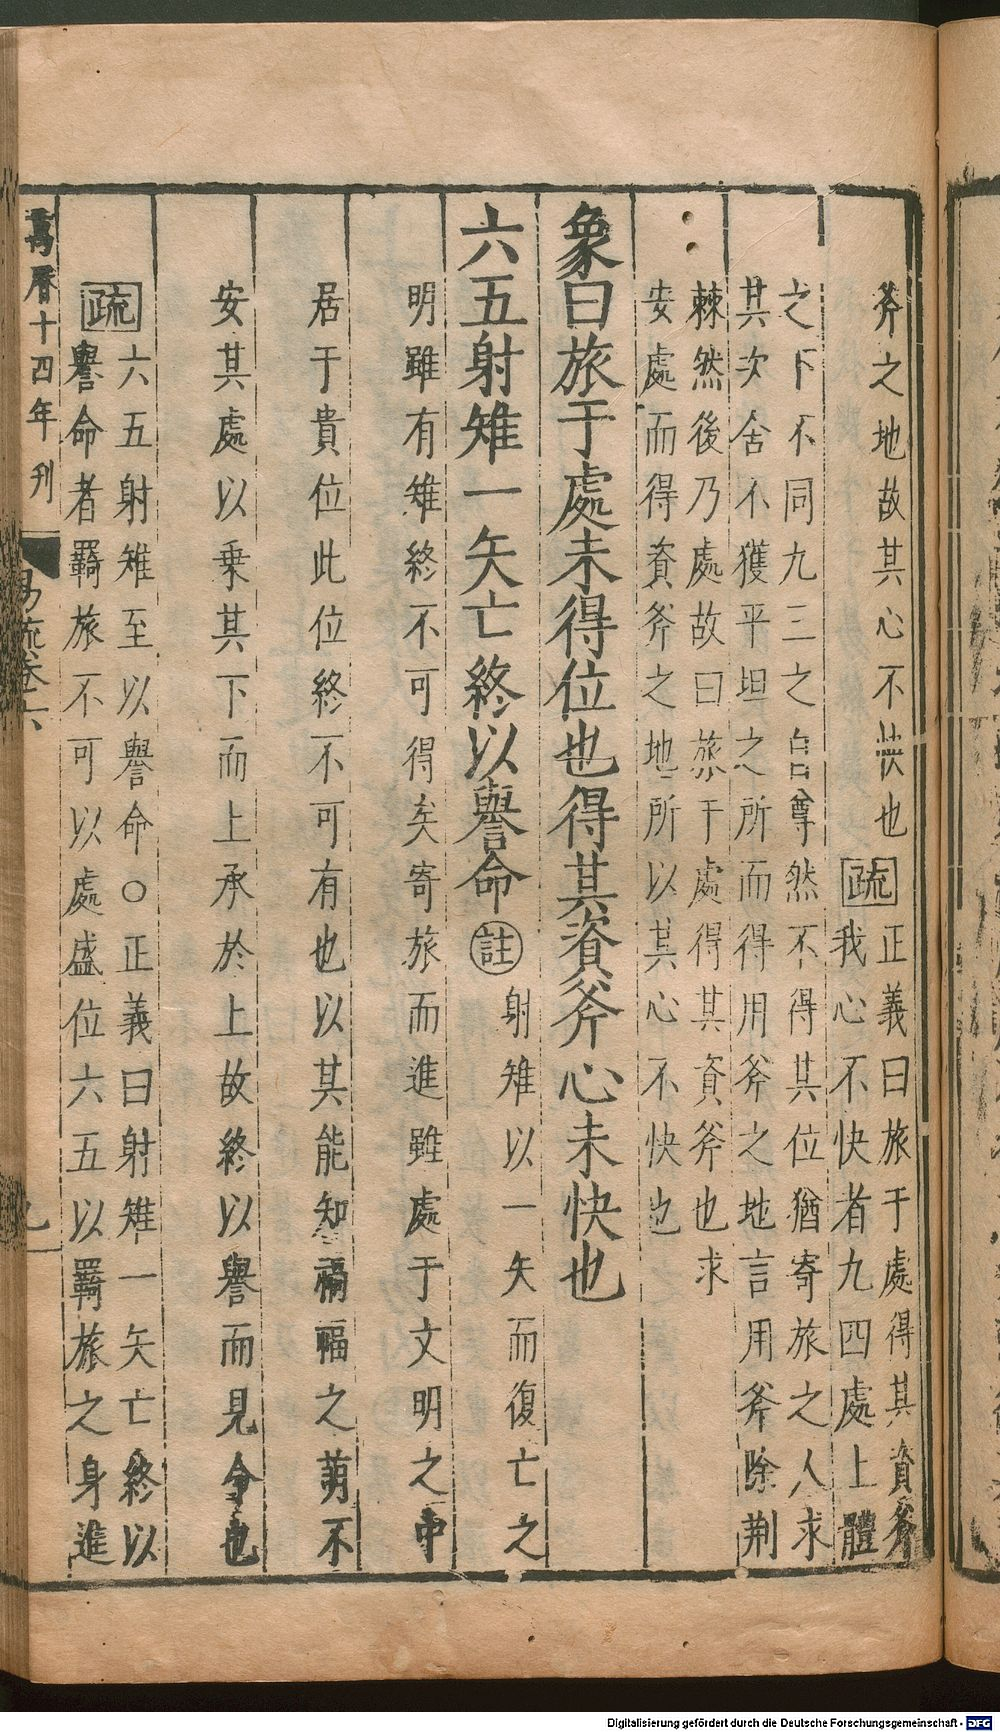 斧之地故其心不快也疏正義曰旅于處得其資斧
我心不快者九四處上體
之下不同九三之自尊然不得其位猶寄旅之人求
其次舍不獲平坦之所而得用斧之地言用斧除荆
棘然後乃處故曰旅于處得其資斧也求
安處而得資斧之地所以其心不快也
象曰旅于處未得位也得其資斧心未快也
六五射雉一矢亡終以譽命註射雉以一矢而復亡之
明雖有雉終不可得矣寄旅而進雖處于文明之中
居于貴位此位終不可有也以其能知禍福之萌不
安其處以乗其下而上承於上故終以譽而見命也
疏六五射雉至以譽命○正義曰射雉一矢亡終以
譽命者羈旅不可以處盛位六五以羈旅之身進
萬曆十四年刊 易疏卷六 九
Digitalisierung gefördert durch die Deutsche Forschungsgemeinschaft - DFG